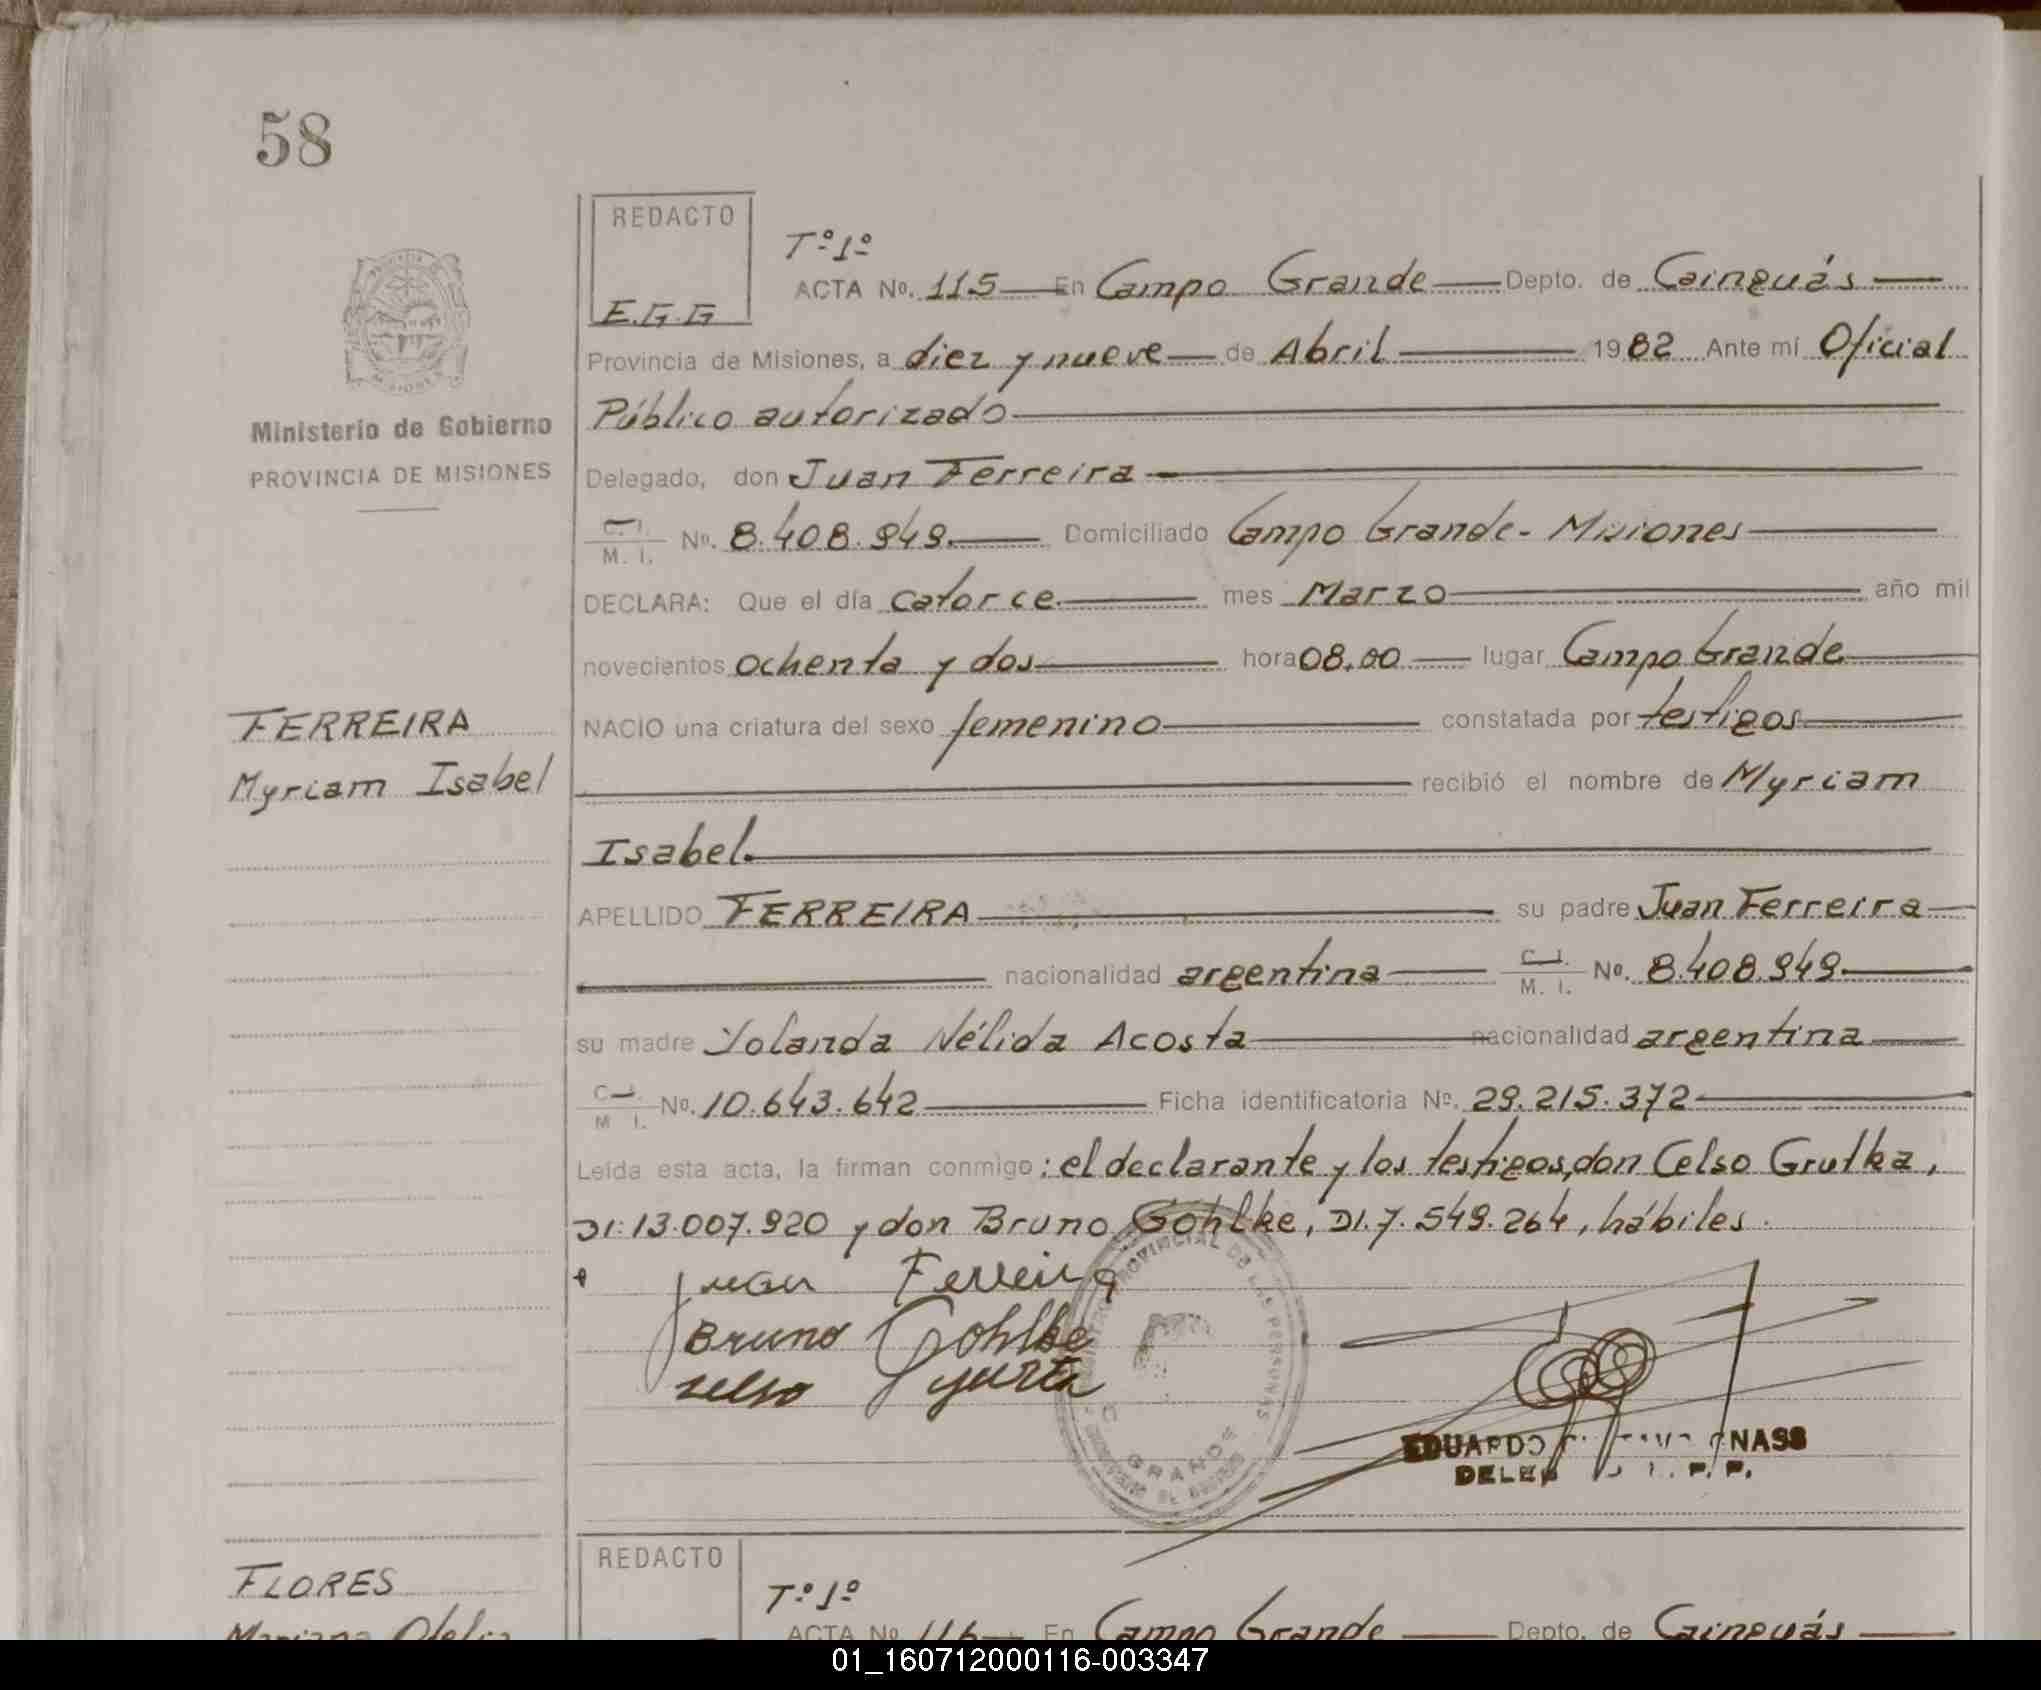 58
REDACTO
E.G.G
Tº 1º
ACTA Nº. 115 En Campo Grande Depto. de Cainguás
Provincia de Misiones, a diez y nueve de Abril 1982 Ante mí Oficial
Público autorizado
Delegado, don Juan Ferreira
C. I. / M. I. Nº. 8.408.949. Domiciliado Campo Grande - Misiones
DECLARA: Que el día catorce mes Marzo año mil
novecientos ochenta y dos hora 08.00 lugar Campo Grande
NACIO una criatura del sexo femenino constatada por testigos
recibió el nombre de Myriam
Isabel.
APELLIDO FERREIRA su padre Juan Ferreira
nacionalidad argentina C. I. / M. I. Nº. 8.408.949
su madre Yolanda Nélida Acosta nacionalidad argentina
C. I. / M I. Nº. 10.643.642 Ficha identificatoria Nº. 29.215.372
Leída esta acta, la firman conmigo: el declarante y los testigos, don Celso Grutka,
DI: 13.007.920 y don Bruno Gohlke, DI. 7.549.264, hábiles.
Juan Ferreira
Bruno Gohlke
PROVINCIAL DE LAS PERSONAS
GRANDE
EDUARDO
Ministerio de Gobierno
PROVINCIA DE MISIONES
FERREIRA
Myriam Isabel
FLORES
Mariana Ofelia
REDACTO
Tº 1º
ACTA Nº 116 En Campo Grande Depto. de Cainguás
01_160712000116-003347